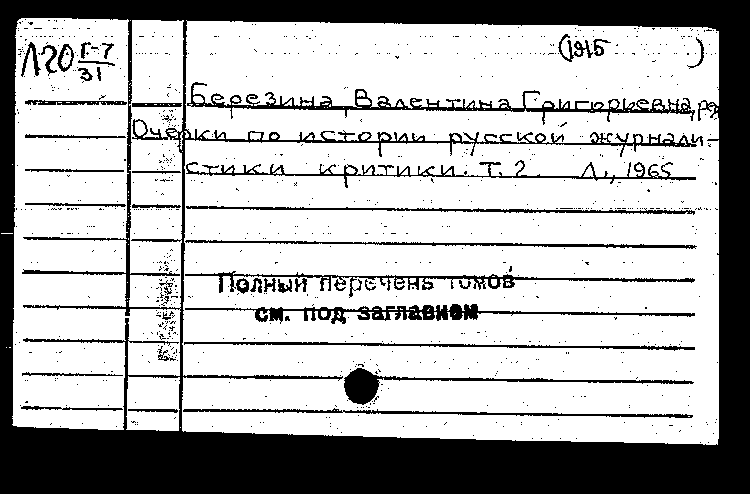 (1915 )
Л20 Г-7
31
Березина, Валентина Григорьевна, ред
Очерки по истории русской журнали-
стики критики. Т. 2. Л., 1965
Полный перечень томов
см. под заглавием